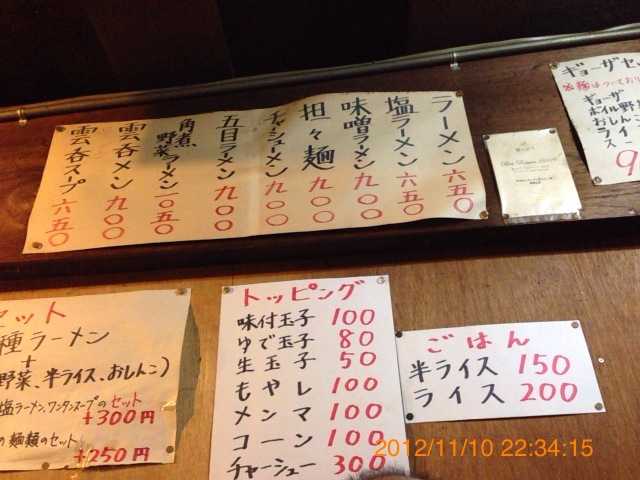 ラーメン 六五〇
塩ラーメン 六五〇
味噌ラーメン 九〇〇
担々麺 九〇〇
チャーシューメン 九〇〇
五目ラーメン 九〇〇
角煮、野菜ラーメン 一〇五〇
雲呑メン 九〇〇
雲呑スープ 六五〇
ギョーザセッ
※麺はついており
ギョーザ
ボイル野
おしんこ
ライ
スー
9
セット
種ラーメン
+
野菜、半ライス、おしんこ)
塩ラーメン、ワンタンスープのセット
+300円
の麺類のセット
+250円
トッピング
味付玉子 100
ゆで玉子 80
生玉子 50
もやし 100
メンマ 100
コーン 100
チャーシュー 300
ごはん
半ライス 150
ライス 200
2012/11/10 22:34:15